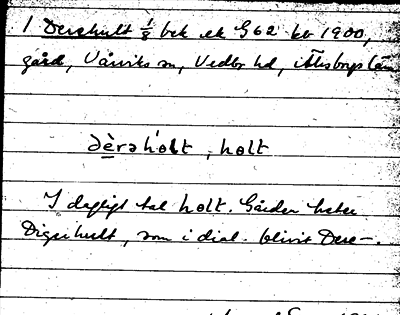 1 Dershult 1/8 bek ek G62 bv 1900,
gård, Vårviks sn, Vedbo hd, Älvsborgs län
dèrəhólt, holt
I dagligt tal holt. Gården heter
Digerhult, som i dial. blivit Dere-.